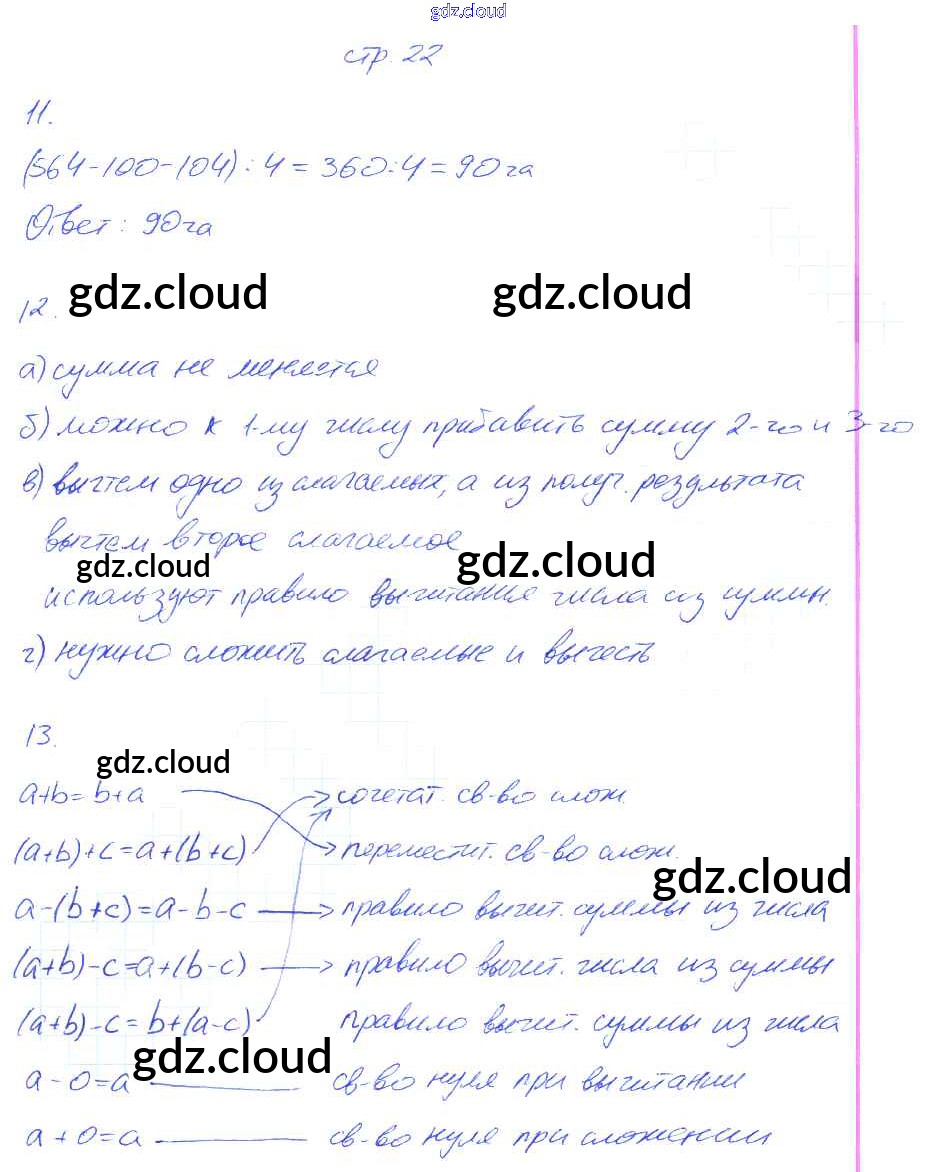 gdz.cloud
стр. 22
11.
(564-100-104):4=360:4=90га
Ответ: 90га
gdz.cloud gdz.cloud
12.
а) сумма не меняется
б) можно к 1-му числу прибавить сумму 2-го и 3-го
в) вычтем одно из слагаемых, а из получ. результата
вычтем второе слагаемое
gdz.cloud gdz.cloud
используют правило вычитания числа из суммы.
г) нужно сложить слагаемые и вычесть
13.
gdz.cloud
a+b=b+a сочетат. св-во слож.
(a+b)+c=a+(b+c) переместит. св-во слож.
gdz.cloud
a-(b+c)=a-b-c правило вычит. суммы из числа
(a+b)-c=a+(b-c) правило вычит. числа из суммы
(a+b)-c=b+(a-c) правило вычит. суммы из числа
gdz.cloud
a-0=a св-во нуля при вычитании
a+0=a св-во нуля при сложении